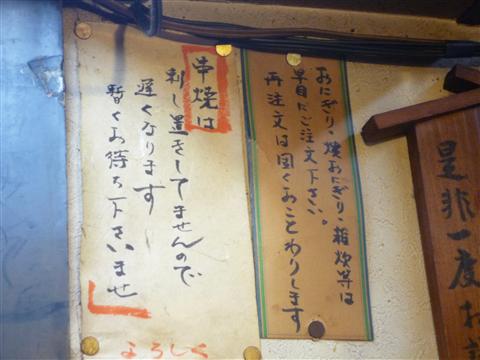 是非一度お
おにぎり・焼おにぎり・雑炊等は
早目にご注文下さい。
再注文は固くおことわりします
串焼は
刺し置きしてませんので
遅くなります
暫くお待ち下さいませ
よろしく